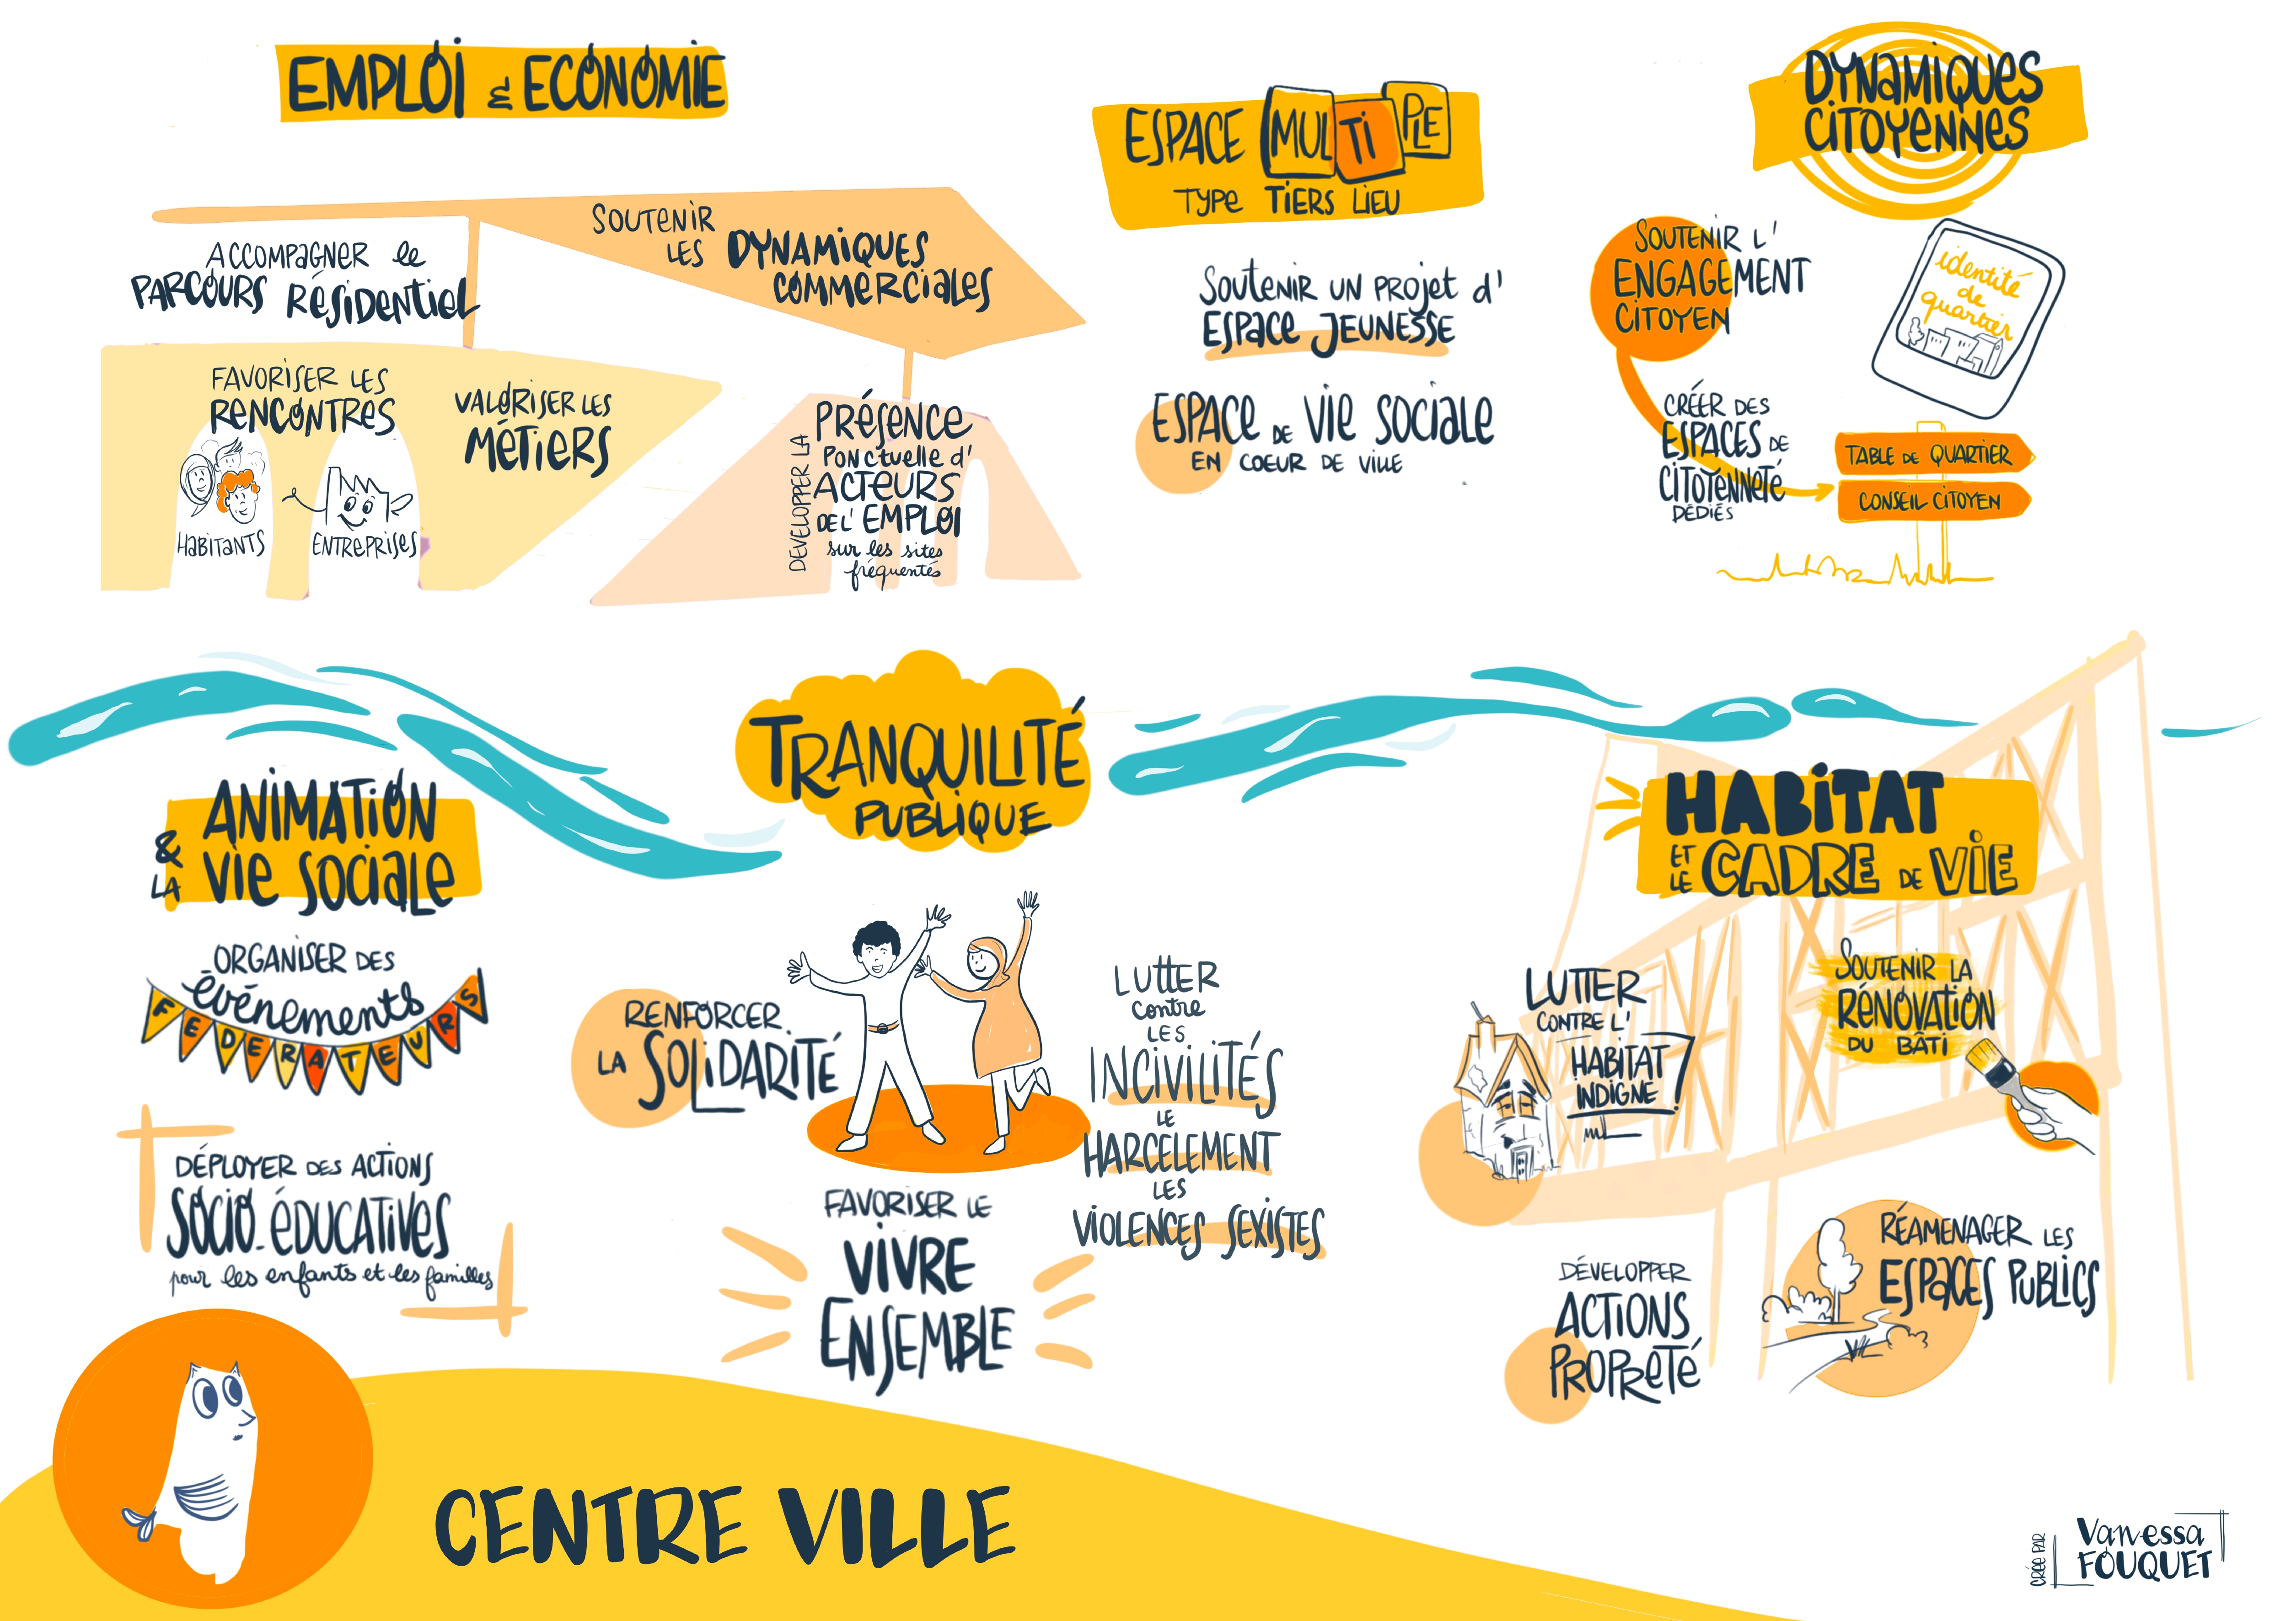 EMPLOI & ECONOMIE
ACCOMPAGNER le
PARCOURS RÉSIDENTIEL
SOUTENIR
LES DYNAMIQUES
COMMERCIALES
FAVORISER LES
RENCONTRES
HABITANTS
ENTREPRISES
VALORISER LES
MÉTIERS
DEVELOPPER LA
PRÉSENCE
PONCTUELLE d'
ACTEURS
DE L' EMPLOI
sur les sites
fréquentés
ESPACE MULTIPLE
TYPE TIERS LIEU
SOUTENIR UN PROJET d'
ESPACE JEUNESSE
ESPACE DE VIE SOCIALE
EN COEUR DE VILLE
DYNAMIQUES
CITOYENNES
SOUTENIR L'
ENGAGEMENT
CITOYEN
identité
de
quartier
CRÉER DES
ESPACES DE
CITOYENNETÉ
DÉDIÉS
TABLE DE QUARTIER
CONSEIL CITOYEN
ANIMATION
& LA VIE SOCIALE
ORGANISER DES
événements
FEDERATEURS
DÉPLOYER DES ACTIONS
SOCIO-ÉDUCATIVES
pour les enfants et les familles
TRANQUILITÉ
PUBLIQUE
RENFORCER
LA SOLIDARITÉ
FAVORISER LE
VIVRE
ENSEMBLE
LUTTER
contre
LES
INCIVILITÉS
LE
HARCELEMENT
LES
VIOLENCES SEXISTES
HABITAT
ET LE CADRE DE VIE
LUTTER
CONTRE L'
HABITAT
INDIGNE !
SOUTENIR LA
RÉNOVATION
DU BÂTI
DÉVELOPPER
ACTIONS
PROPRETÉ
RÉAMENAGER LES
ESPACES PUBLICS
CENTRE VILLE
CRÉE PAR
Vanessa
FOUQUET